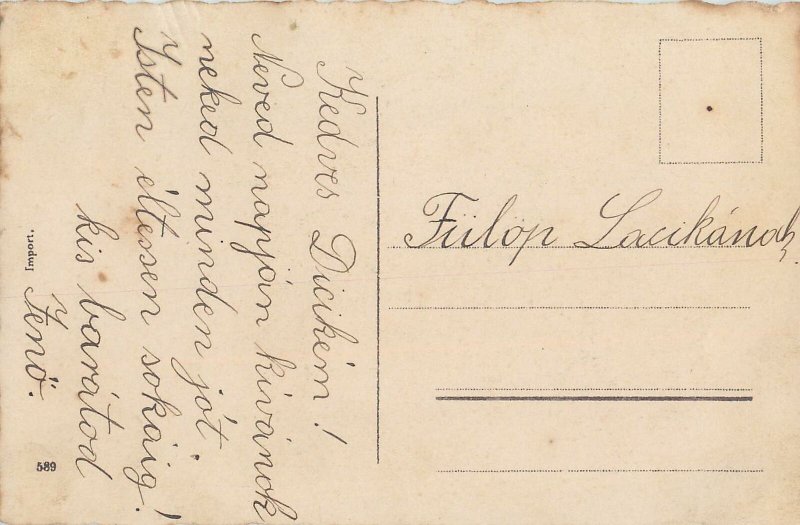 Kedves Dicikém!
Neved napján kivánok
neked minden jót.
Isten éltessen sokáig!
kis barátod
Jenő.
Fülöp Lacikának
Import.
589